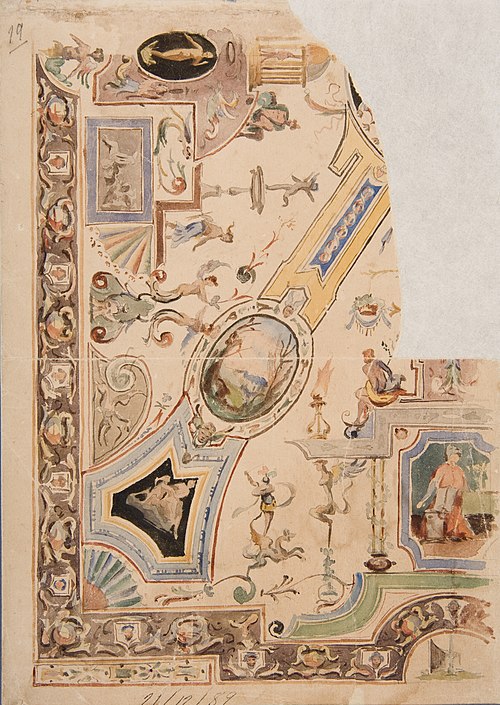 19
21/12/89